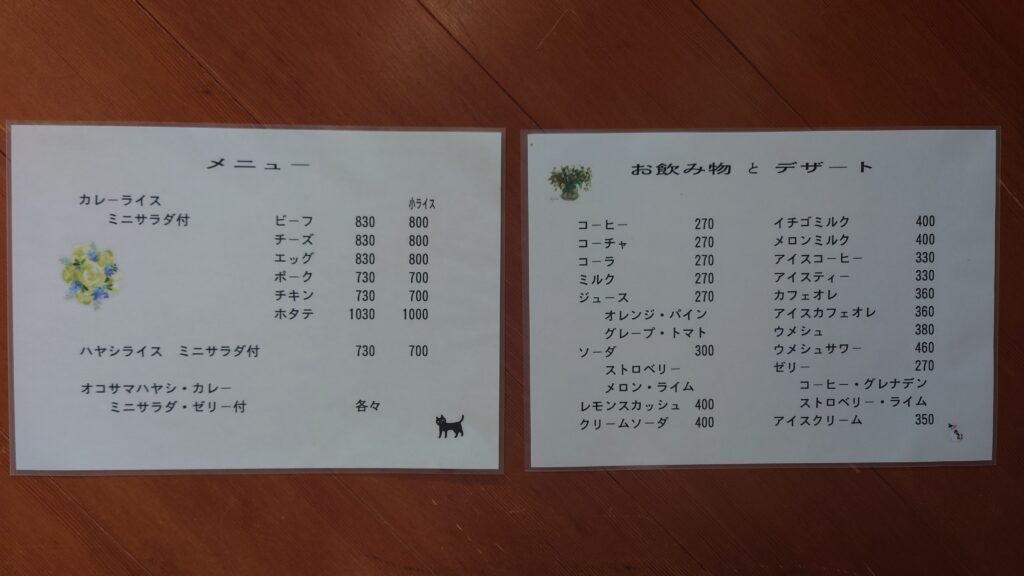 メニュー
カレーライス 小ライス
ミニサラダ付 ビーフ 830 800
チーズ 830 800
エッグ 830 800
ポーク 730 700
チキン 730 700
ホタテ 1030 1000
ハヤシライス ミニサラダ付 730 700
オコサマハヤシ・カレー
ミニサラダ・ゼリー付 各々
お飲み物 と デザート
コーヒー 270
コーチャ 270
コーラ 270
ミルク 270
ジュース 270
オレンジ・パイン
グレープ・トマト
ソーダ 300
ストロベリー
メロン・ライム
レモンスカッシュ 400
クリームソーダ 400
イチゴミルク 400
メロンミルク 400
アイスコーヒー 330
アイスティー 330
カフェオレ 360
アイスカフェオレ 360
ウメシュ 380
ウメシュサワー 460
ゼリー 270
コーヒー・グレナデン
ストロベリー・ライム
アイスクリーム 350